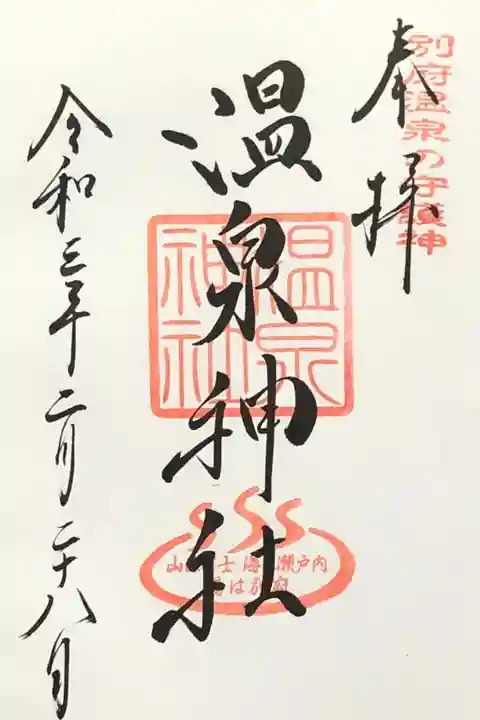 別府温泉の守護神
奉拝
温泉神社
温泉神社
山は富士海は瀬戸内
湯は別府
令和三年二月二十八日